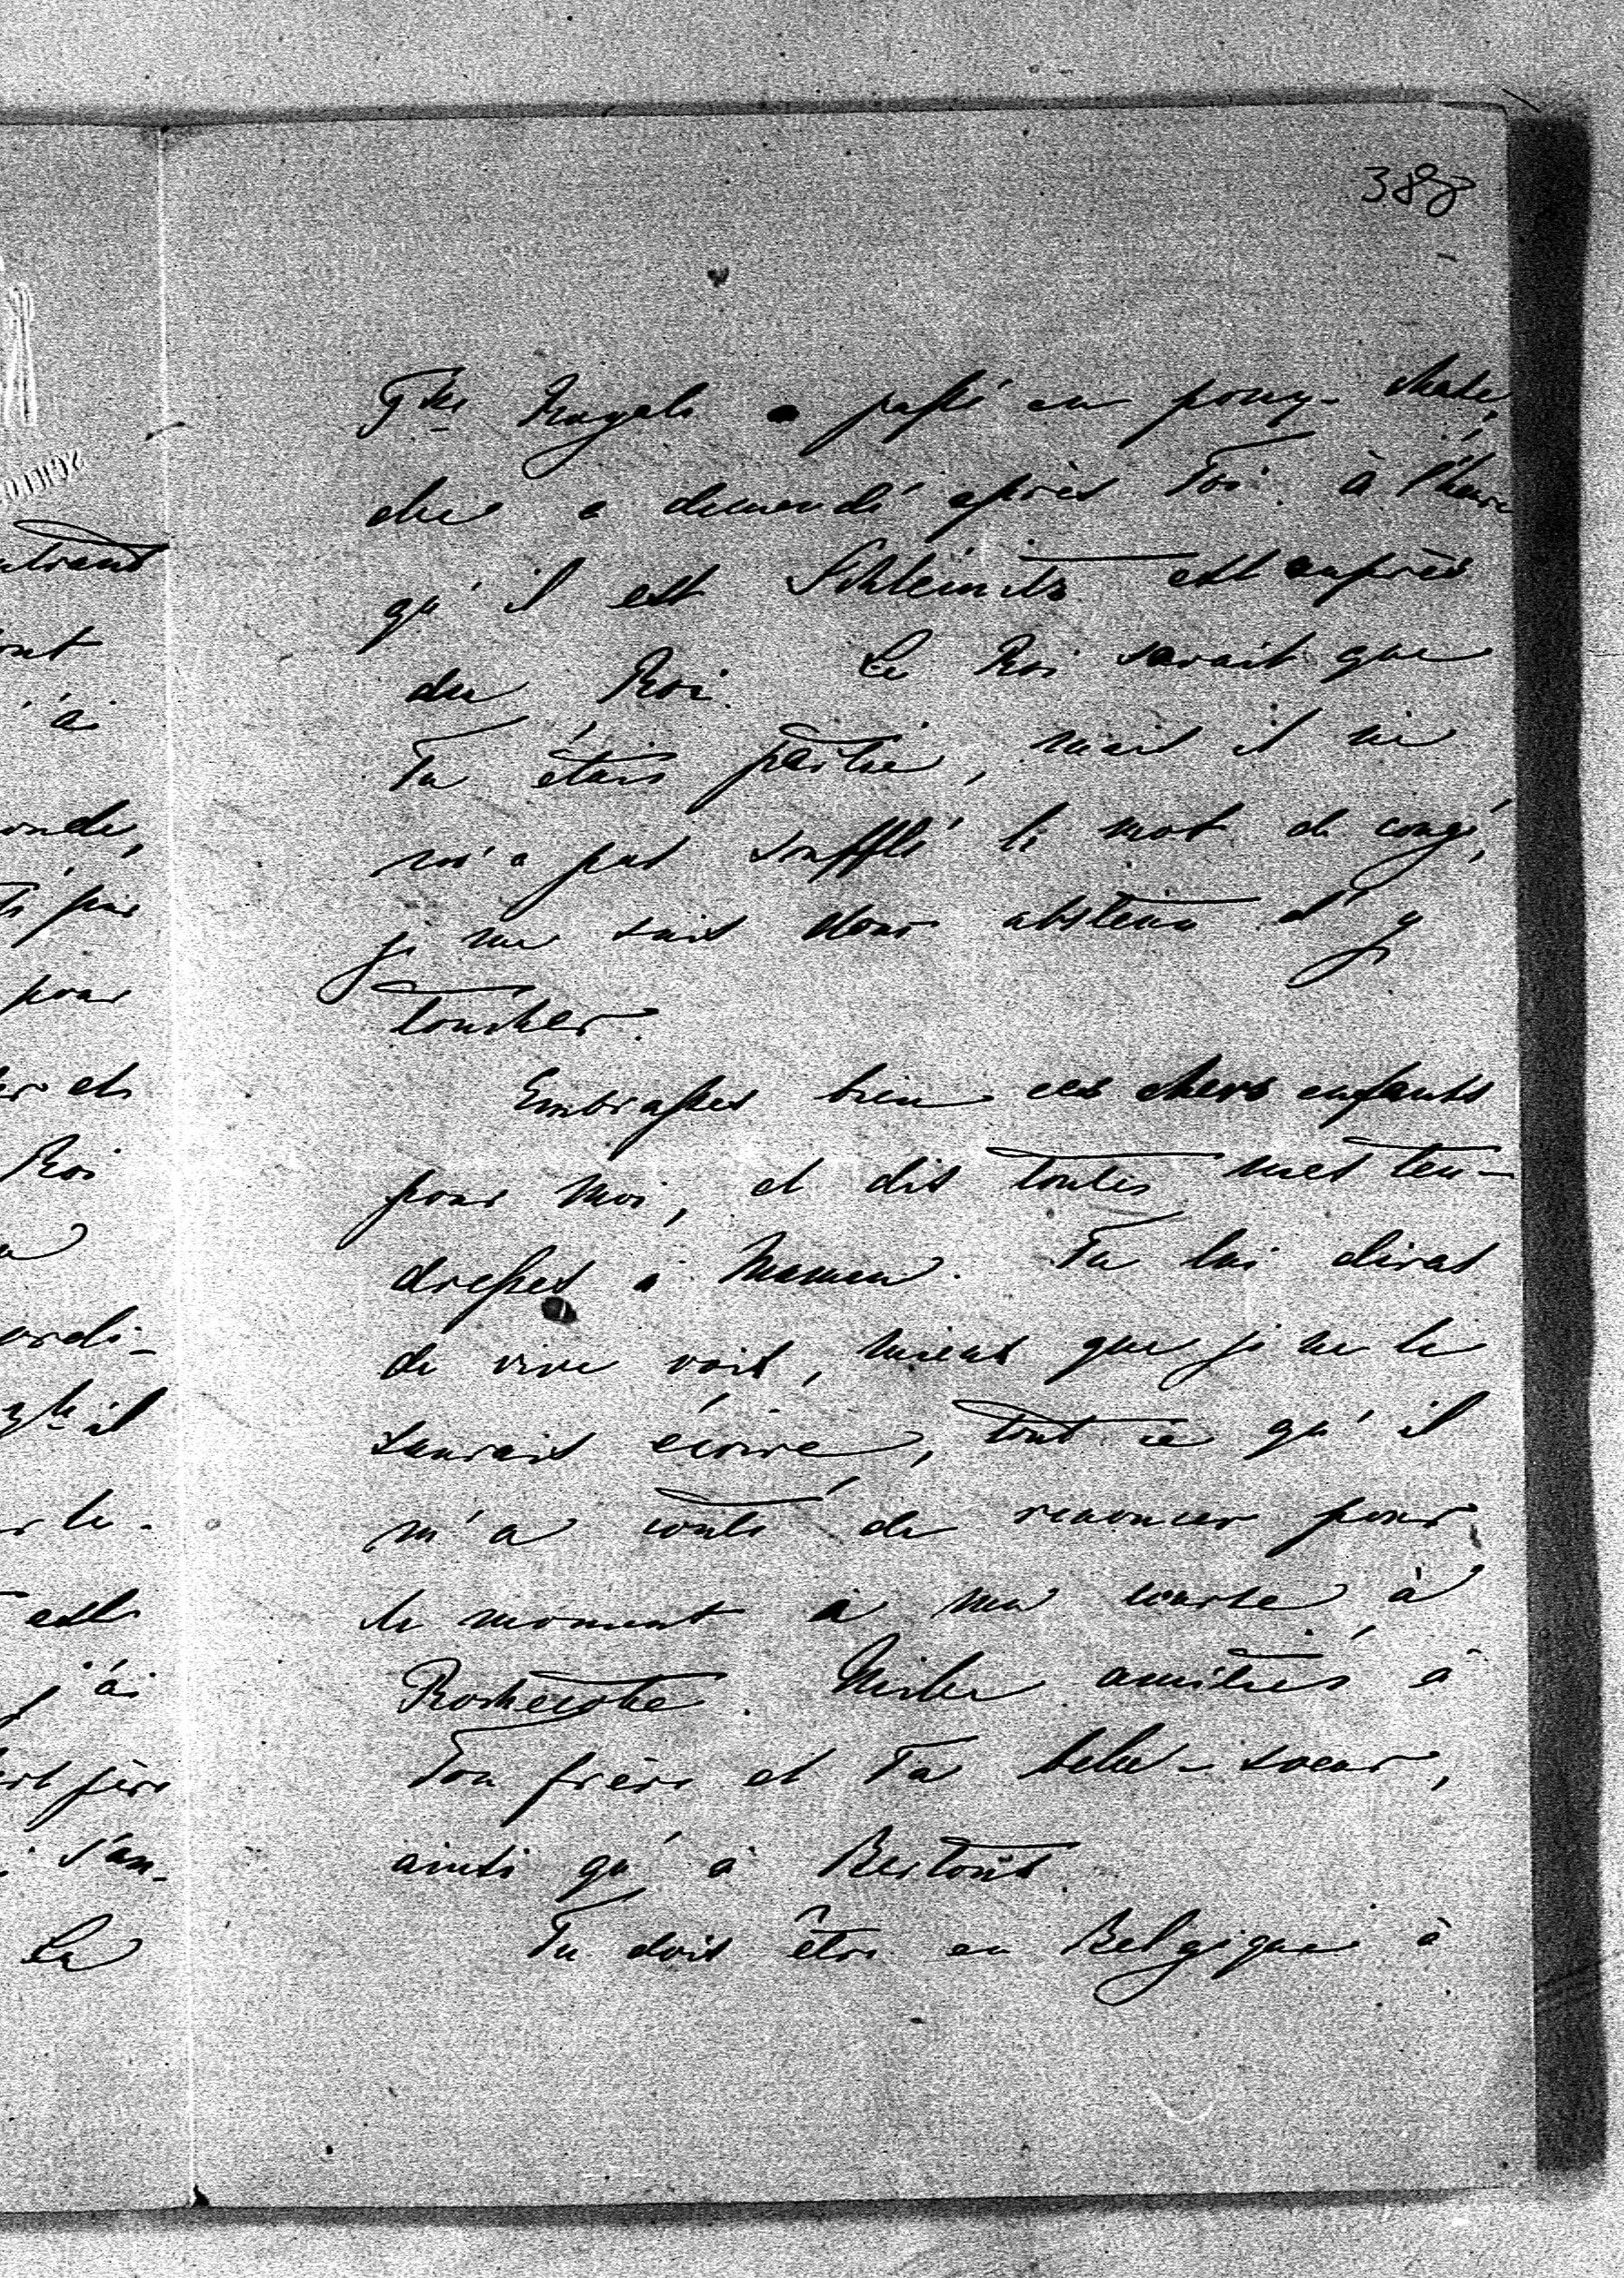 388
Psse Nagels a passé en pony-
elle a demandé après Toi. à l'heure
qu'il est Schleinitz est auprès
du Roi. Le Roi savait que
Tu étais partie, mais il ne
m'a pas soufflé le mot de congé,
je me suis donc abstenu d'y
toucher.
Embrasses bien ces chers enfants
pour moi, et dis toutes mes ten-
dresses à Maman. Tu lui diras
de vive voix, mieux que je ne le
saurais écrire, tout ce qu'il
m'a couté de renoncer pour
le moment à ma course à
Rochecotte. Mille amitiés à
Ton frère et Ta belle-soeur,
ainsi qu'à
Tu dois être en Belgique à
ont
ai
onde,
pour
Roi
il
est
j'ai
La